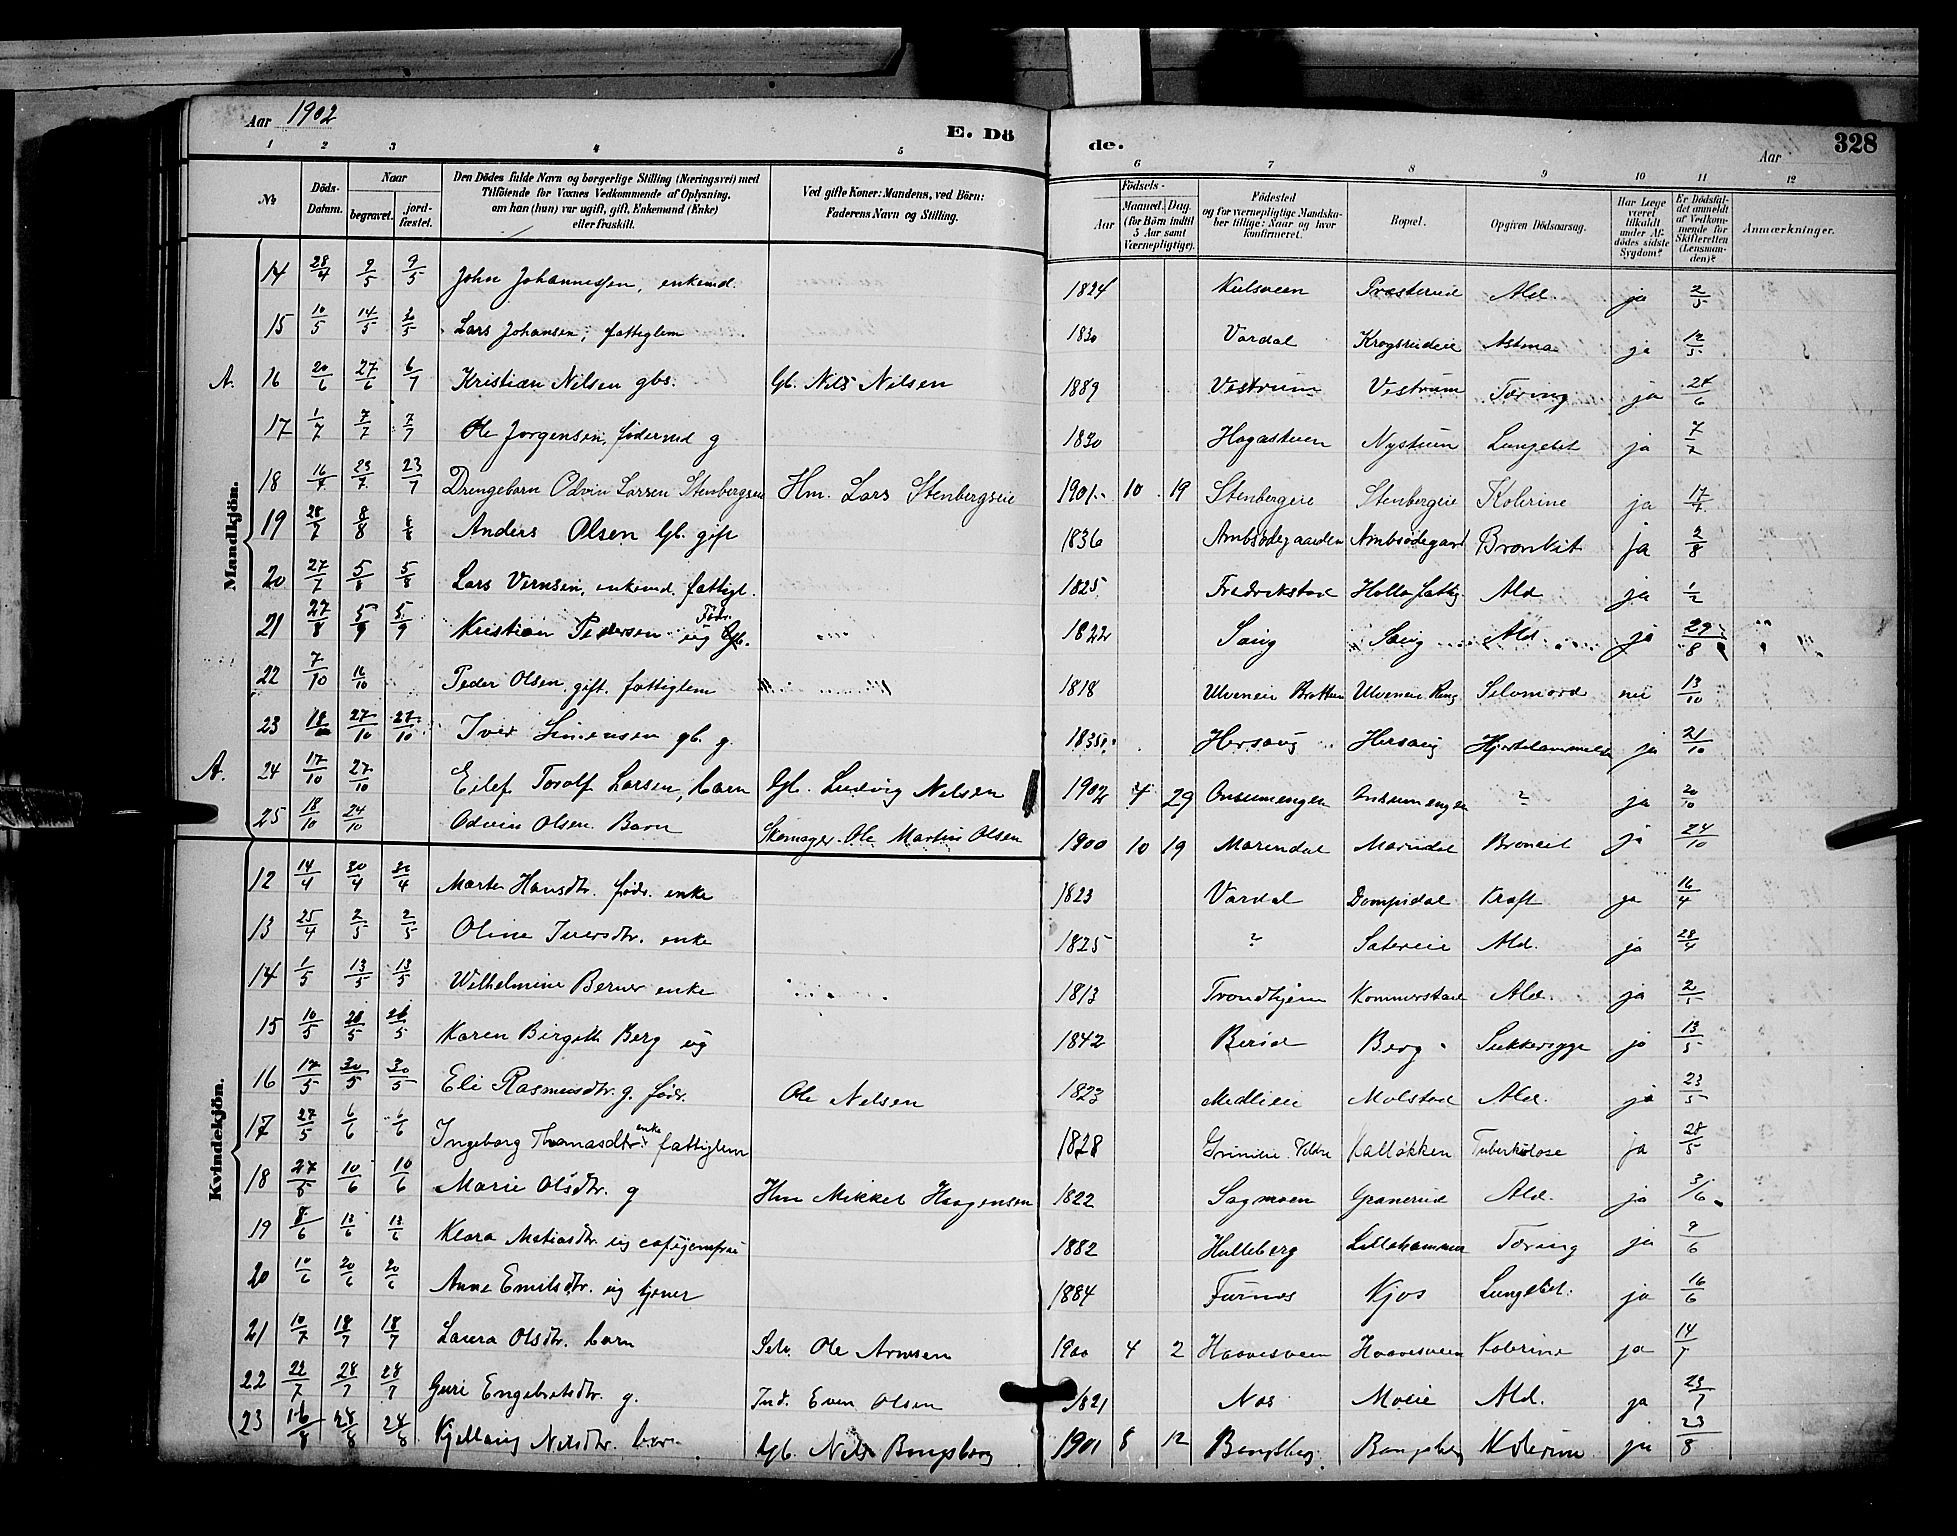 Aar 1902
E. Dö
de.
Aar
328
1 2 3 4 5 6 7 8 9 10 11 12
No
Döds-Datum.
Naar
begravet.
jord-fæstet.
Den Dödes fulde Navn og borgerlige Stilling (Næringsvei) med
Tilföiende for Voxnes Vedkommende af Oplysning,
om han (hun) var ugift, gift, Enkemand (Enke)
eller fraskilt.
Ved gifte Koner: Mandens, ved Börn:
Faderens Navn og Stilling.
Födsels-
Aar
Maaned. Dag.
(for Börn indtil
5 Aar samt
Værnepligtige).
Födested
og for værnepligtige Mandska-
ber tillige: Naar og hvor
konfirmeret.
Bopæl.
Opgiven Dödsaarsag.
Har Læge
været
tilkaldt
under Af-
dödes sidste
Sygdom?
Er Dödsfal-
det anmeldt
af Vedkom-
mende for
Skifteretten
(Lensman-
den)?
Anmærkninger.
Mandkjön.
14 28/4 9/5 9/5 John Johannessen, enkemd. 1824 Kulsveen Præsterud Ald. ja 2/5
15 10/5 14/5 20/5 Lars Johansen, fattiglem 1830 Vardal Krogsrudeie Astma ja 12/5
A. 16 20/6 27/6 6/7 Kristian Nilsen gbs. Gb. Nils Nilsen 1889 Vestrum Vestrum Tæring ja 24/6
17 1/7 7/7 7/7 Ole Jorgensen, födermd g 1830 Hagastuen Nystuen Lungebet ja 7/7
18 16/7 23/7 23/7 Drengebarn Odvin Larsen Stenbergseie Hm. Lars Stenbergseie 1901 10 19 Stenbergeie Stenbergeie Kolerine ja 17/7
19 28/7 8/8 8/8 Anders Olsen Gb. gift 1836 Ambsödegaarden Ambsödegaard Bronkit ja 2/8
20 27/7 5/8 5/8 Lars Vernsen, enkemd. fattigl. 1825 Fredrikstad Holla fattig Ald ja 1/2
21 27/8 5/9 5/9 Kristian Pedersen ug Födr. Gb. 1822 Saug Saug Ald. ja 29/8
22 7/10 16/10 Peder Olsen gift. fattiglem 1818 Ulveneie Bratten Ulveneie Ring Selvmord nei 13/10
23 18 27/10 27/10 Iver Simensen gb. g. 1835 Hersaug Hersaug Hjertelammelse ja 21/10
A. 24 17/10 27/10 Eilef Toralf Larsen, barn Gb. Ludvig Nilsen 1902 4 29 Onsumengen Onsumengen ? ja 20/10
25 18/10 24/10 Odvin Olsen Barn Skomager Ole Martin Olsen 1900 10 19 Marendal Marndal Broncit ja 24/10
Kvindekjön.
12 14/4 20/4 20/4 Marte Hansdtr. födr. enke 1823 Vardal Dompidal Kræft ja 16/4
13 25/4 2/5 2/5 Oline Iversdtr. enke 1825 ? Sætereie Ald. ja 28/4
14 1/5 13/5 13/5 Wilhelmine Berner enke 1813 Trondhjem Kommerstad Ald. ja 2/5
15 10/5 20/5 20/5 Karen Birgitte Berg ug 1842 Birid Berg Sukkersyge ja 13/5
16 17/5 30/5 30/5 Eli Rasmusdtr. g. födr. Ole Nelsen 1823 Medlieie Molstad Ald. ja 23/5
17 27/5 6/6 6/6 Ingeborg Thomasdtr. enke fattiglem 1828 Grinieie Veldre Kallökken Tuberkolose ja 28/5
18 27/5 10/6 10/6 Marie Olsdtr. g Hm Mikkel Haagensen 1822 Sagmoen Granerud Ald. ja 3/6
19 8/6 13/6 13/6 Klara Matiasdtr. ug cafejomfru 1882 Hulleberg Lillehammer Tæring ja 9/6
20 10/6 20/6 20/6 Anne Emilsdtr. ug tjener 1884 Furnes Kjos Lungebet. ja 16/6
21 10/7 18/7 18/7 Laura Olsdtr. barn Selv. Ole Arnesen 1900 4 2 Haavesveen Haavesveen Kolerine ja 14/7
22 22/7 28/7 28/7 Guri Engebretsdtr. g. Ind. Even Olsen 1821 Nes Moeie Ald. ja 23/7
23 16/8 28/8 24/8 Kjellaug Nilsdtr. barn Gb. Nils Bangsberg 1901 8 12 Bangsberg Bangsberg Kolerine ja 23/8